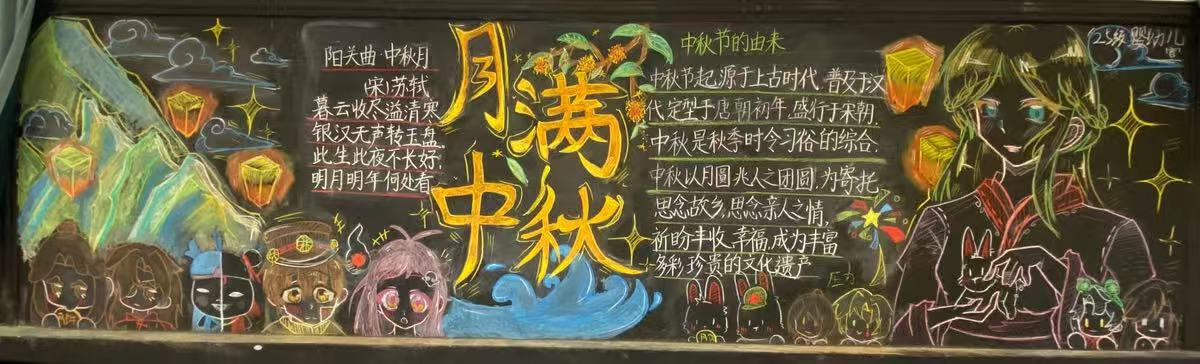 阳关曲·中秋月
(宋)苏轼
暮云收尽溢清寒,
银汉无声转玉盘.
此生此夜不长好,
明月明年何处看.
月满
中秋
中秋节的由来
中秋节起源于上古时代,普及于汉
代,定型于唐朝初年,盛行于宋朝.
中秋是秋季时令习俗的综合.
中秋以月圆兆人之团圆,为寄托
思念故乡,思念亲人之情,
祈盼丰收、幸福,成为丰富
多彩、珍贵的文化遗产
压力
25级婴幼儿